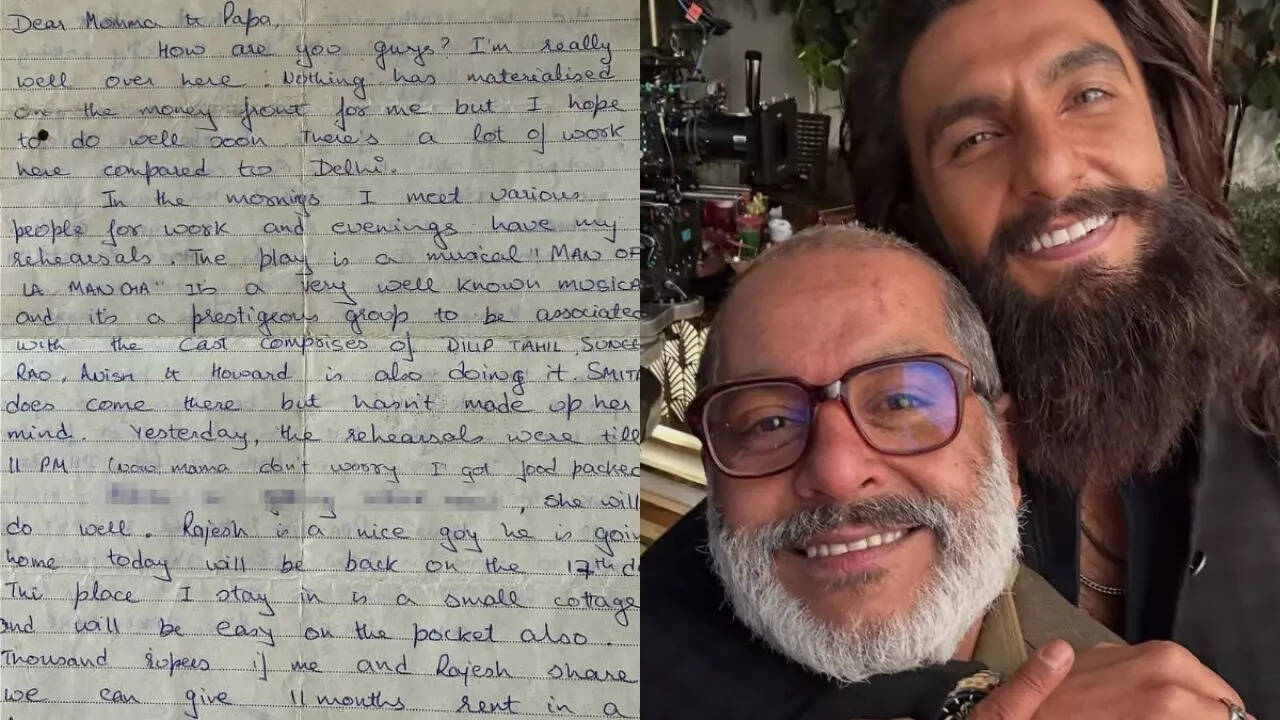 Dear Momma & Papa,
How are you guys? I'm really
well over here. Nothing has materialised
on the money front for me but I hope
to do well soon There's a lot of work
here compared to Delhi.
In the mornings I meet various
people for work and evenings have my
rehearsals. The play is a musical "MAN OF
LA MANCHA" It's a very well known musica
and it's a prestigeous group to be associated
with the cast comprises of DILIP TAHIL, SUNEE
RAO, Avish & Howard is also doing it. SMITA
does come there but hasn't made up her
mind. Yesterday, the rehearsals were till
11 PM (wow, mama don't worry I got food packed
, she will
do well. Rajesh is a nice guy he is goin
home today will be back on the 17th d
The place I stay in is a small cottage
and will be easy on the pocket also.
Thousand rupees if me and Rajesh share
we can give 11 months rent in a